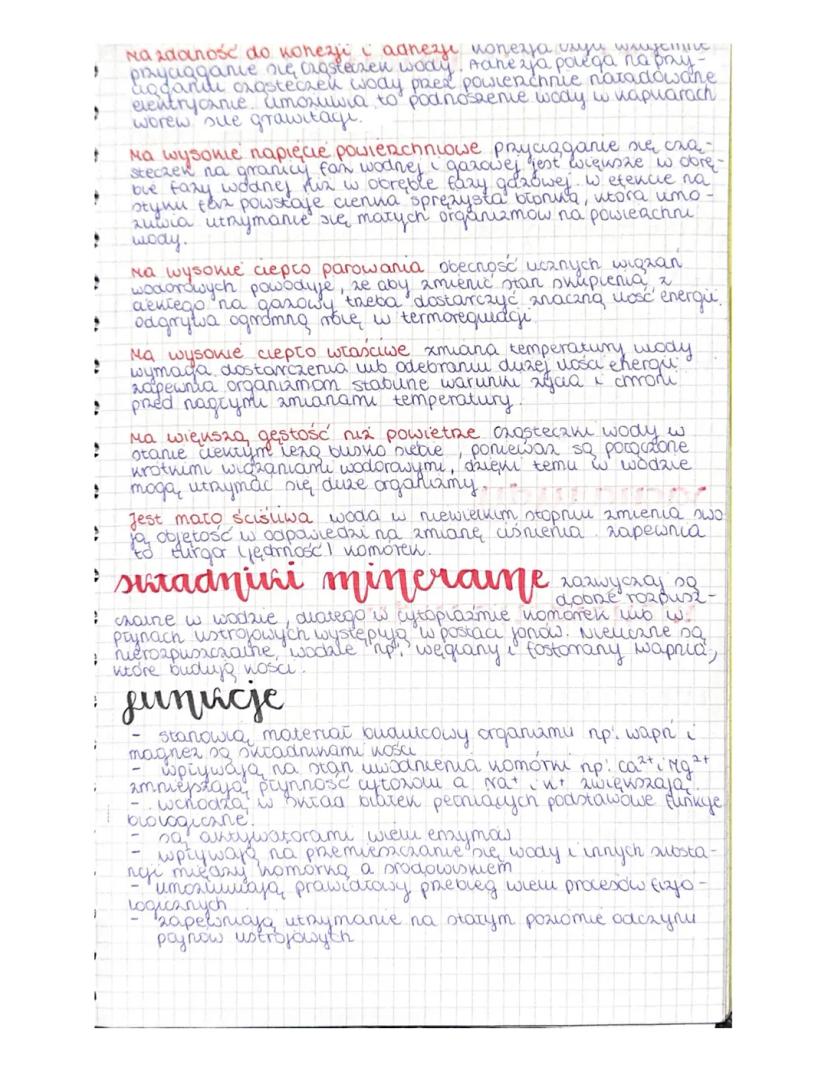 Ma zdolność do kohezji i adhezji kohezja czyli wzajemne
przyciąganie się cząsteczek wody. Adhezja polega na przy-
ciąganiu cząsteczek wody przez powierzchnie naładowane
elektrycznie. umożliwia to podnoszenie wody w kapilarach
wbrew sile grawitacji.
Ma wysokie napięcie powierzchniowe przyciąganie się czą-
steczek na granicy faz wodnej i gazowej jest większe w obrę-
bie fazy wodnej niż w obrębie fazy gazowej. w efekcie na
styku faz powstaje cienka sprężysta błonka, która umo-
żliwia utrzymanie się małych organizmów na powierzchni
wody.
Ma wysokie ciepło parowania obecność licznych wiązań
wodorowych powoduje, że aby zmienić stan skupienia z
ciekłego na gazowy trzeba dostarczyć znaczną ilość energii.
odgrywa ogromną rolę w termoregulacji
Ma wysokie ciepło właściwe zmiana temperatury wody
wymaga dostarczenia lub odebrania dużej ilości energii
zapewnia organizmom stabilne warunki życia i chroni
przed nagłymi zmianami temperatury.
Ma większą gęstość niż powietrze cząsteczki wody w
stanie ciekłym leżą blisko siebie, ponieważ są połączone
krótkimi wiązaniami wodorowymi, dzięki temu w wodzie
mogą utrzymać się duże organizmy.
Jest mało ściśliwa woda w niewielkim stopniu zmienia swo
ją objętość w odpowiedzi na zmianę ciśnienia. zapewnia
to turgor (jędrność) komórek.
składniki mineralne zazwyczaj są
dobrze rozpusz-
czalne w wodzie, dlatego w cytoplazmie komórek lub w
płynach ustrojowych występują w postaci jonów. Nieliczne są
nierozpuszczalne, wodzie np. węglany i fosforany wapnia,
które budują kości.
funkcje
- stanowią materiał budulcowy organizmu np. wapń i
magnez są składnikami kości
- wpływają na stan uwodnienia komórki np. Ca²⁺ i Mg²⁺
zmniejszają płynność cytozolu a Na⁺ i K⁺ zwiększają.
- wchodzą w skład białek pełniących podstawowe funkcje
biologiczne.
- są aktywatorami wielu enzymów
- wpływają na przemieszczanie się wody i innych substa-
ncji między komórką a środowiskiem
- umożliwiają prawidłowy przebieg wielu procesów fizjo-
logicznych
- zapewniają utrzymanie na stałym poziomie odczynu
płynów ustrojowych